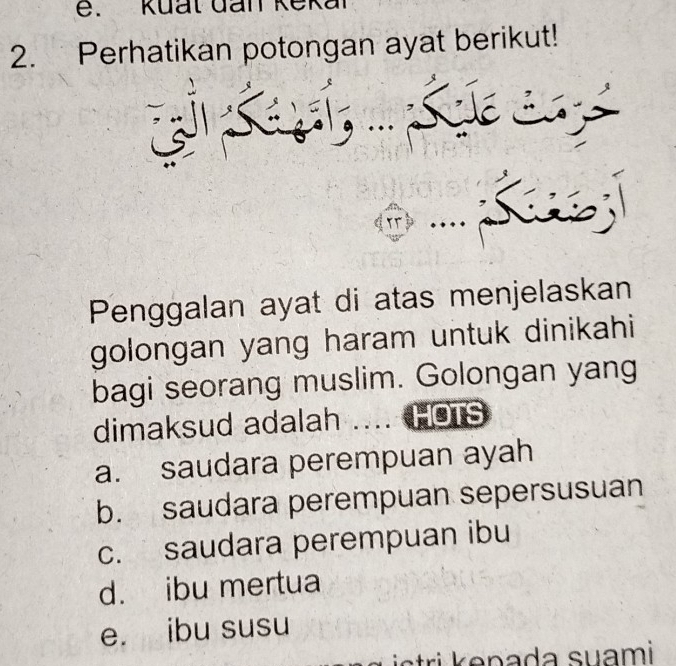 e. kuat dan kekal
2. Perhatikan potongan ayat berikut!
حُرِّمَتْ عَلَيْكُمْ ... وَاُمَّهٰتُكُمُ الّٰتِيْٓ
اَرْضَعْنَكُمْ .... ﴿٢٣﴾
Penggalan ayat di atas menjelaskan
golongan yang haram untuk dinikahi
bagi seorang muslim. Golongan yang
dimaksud adalah .... HOTS
a. saudara perempuan ayah
b. saudara perempuan sepersusuan
c. saudara perempuan ibu
d. ibu mertua
e. ibu susu
istri kepada suami